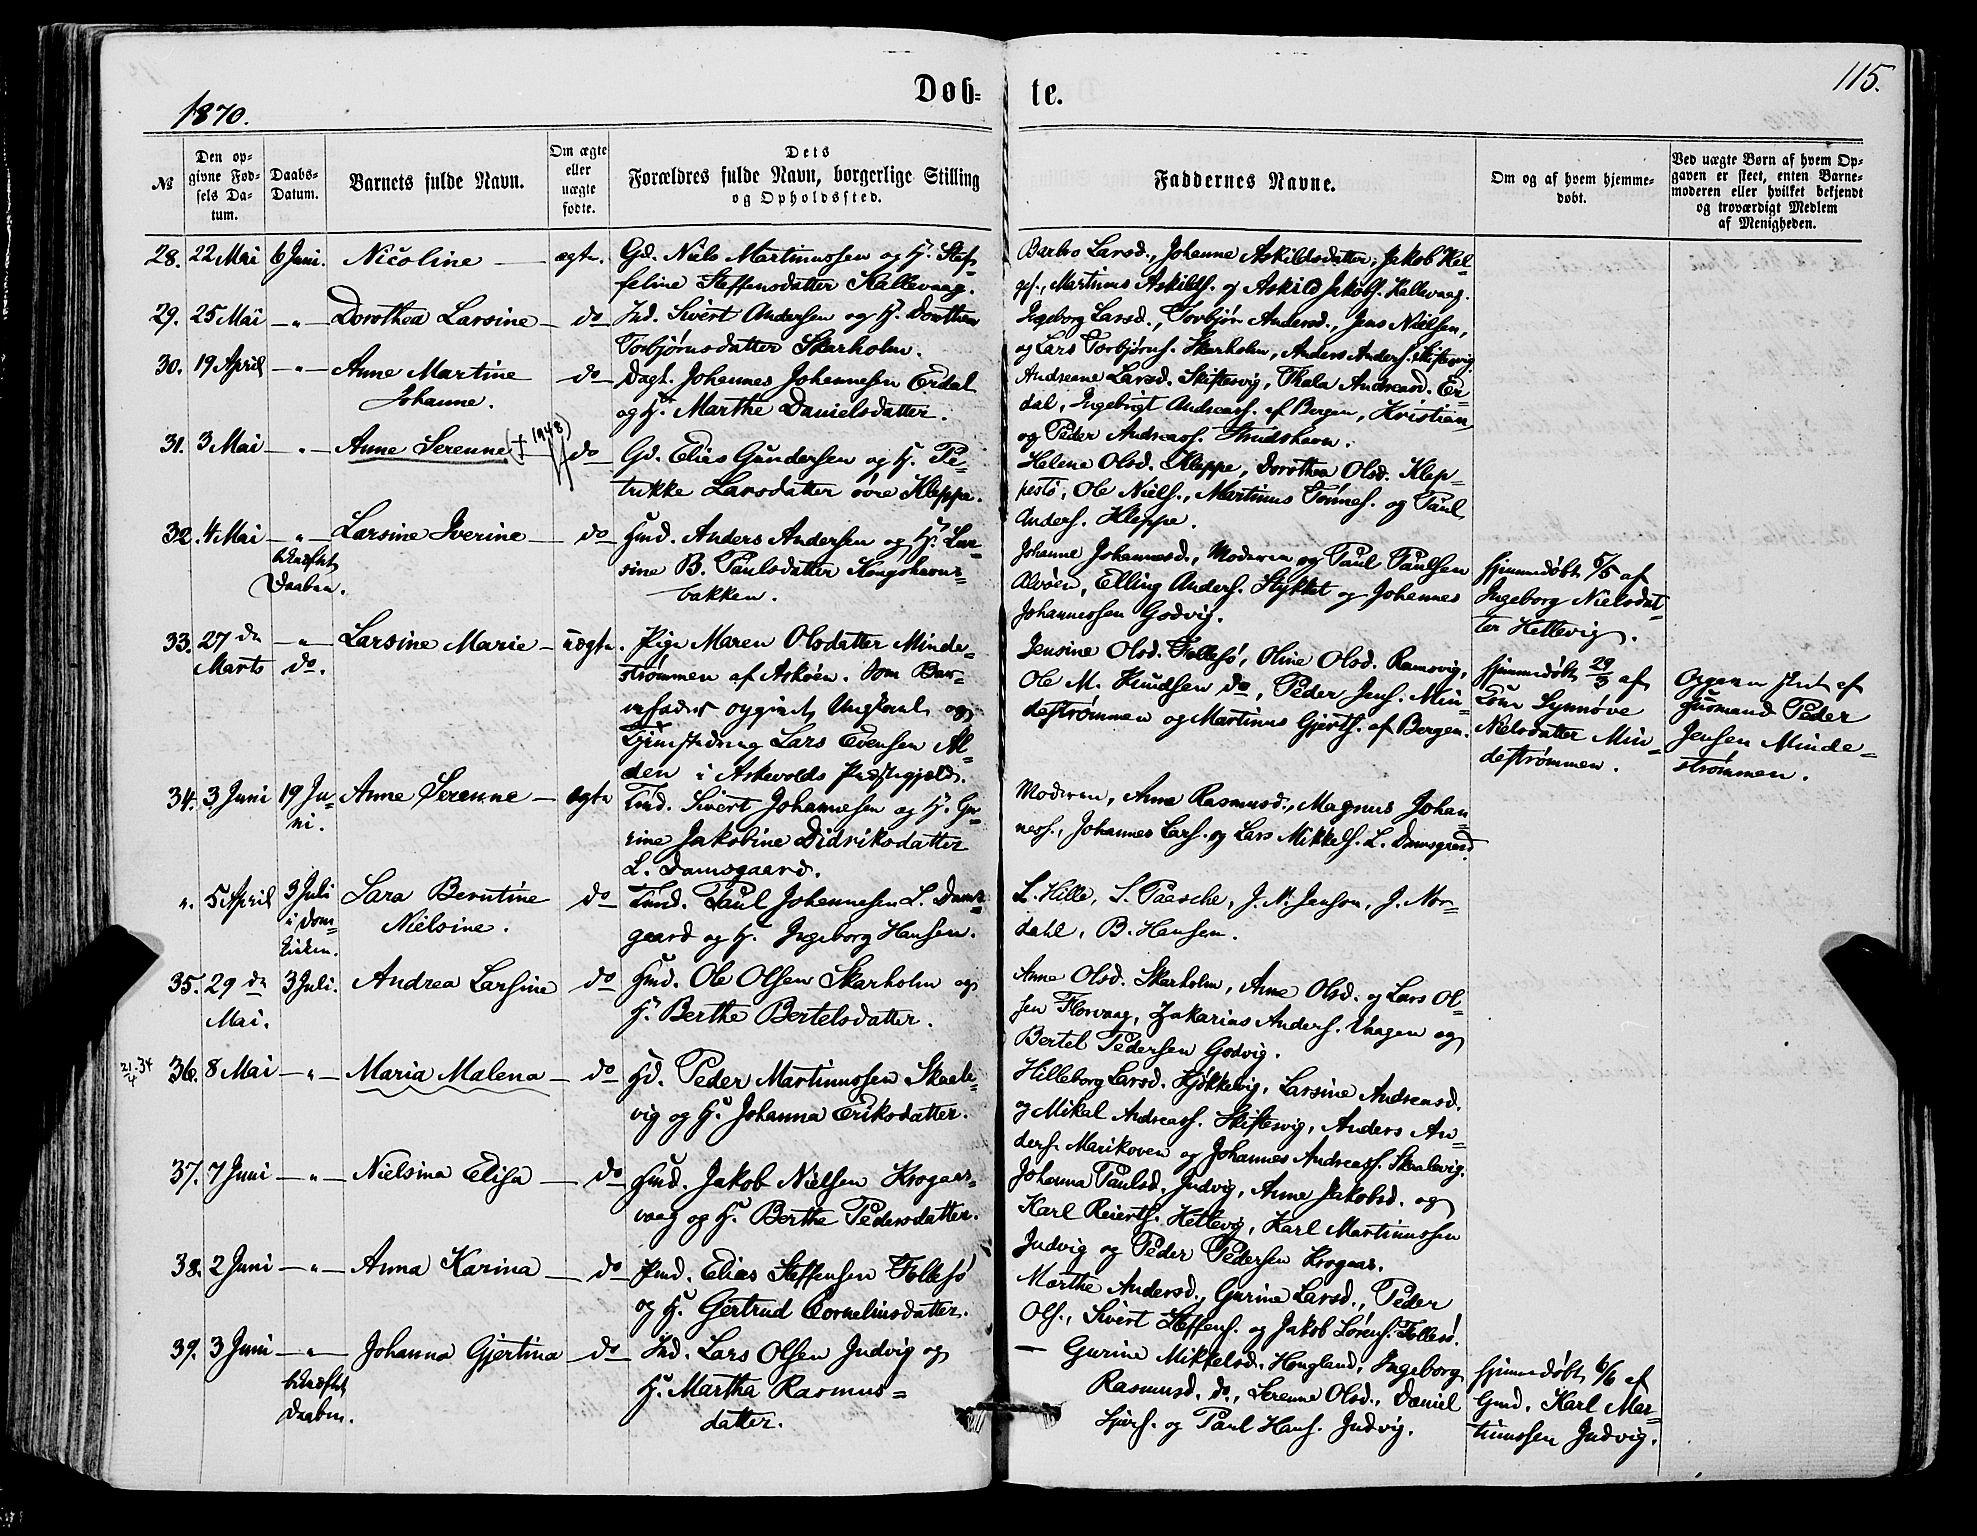 1870.
Døb- te.
115.
No
Den op-
givne Fød-
sels Da-
tum.
Daabs-
Datum.
Barnets fulde Navn.
Om ægte
eller
uægte
fødte.
Dets
Forældres fulde Navn, borgerlige Stilling
og Opholdssted.
Faddernes Navne.
Om og af hvem hjemme-
døbt.
Ved uægte Børn af hvem Op-
gaven er skeet, enten Barne-
moderen eller hvilket bekjendt
og troværdigt Medlem
af Menigheden.
28. 22 Mai 6 Juni. Nicoline — ægte. Gd. Niels Martinussen og H. Stef-
feline Steffensdatter Kallevaag.
Barbro Larsd., Johanne Askildsdatter, Jakob Hel-
ges., Martinus Askilds. og Askild Jakobs. Kallevaag.
29. 25 Mai —"— Dorothea Larsine — do Ind. Sivert Andersen og H. Dorthea
Torbjørnsdatter Skarholm.
Ingeborg Larsd., Torbjør Andersd., Jens Nielsen,
og Lars Torbjørns. Skarholm, Anders Anders. Skiftesvig.
30. 19 April —"— Anne Martine
Johanne.
do Dagl. Johannes Johannesen Erdal
og H. Marthe Danielsdatter.
Andreane Larsd. Skiftesvig, Thala Andreasd. Er-
dal, Ingebrigt Andreass. af Bergen, Kristian
og Peder Andreass. Strudshavn.
31. 3 Mai —"— Anne Serenne (+ 1948)
do Gd. Elias Gundersen og H. Pe-
trikke Larsdatter øvre Kleppe.
Helene Olsd. Kleppe, Dorothea Olsd. Klep-
pestø, Ole Niels., Martinus Tønnes. og Paul
Anders. Kleppe.
32. 4 Mai —"—
bekræftet
Daaben.
Larsine Iverine — do Hmd. Anders Andersen og H. Lar-
sine B. Paulsdatter Kongshavns-
bakken.
Johanne Johannesd., Moderen og Paul Paulsen
Alvøen, Elling Anders. Stykket og Johannes
Johannessen Godvig.
hjemmedøbt 5/5 af
Ingeborg Nielsdat
ter Hettevig.
33. 27 de
Marts
—"—
do.
Larsine Marie — uægte. Pige Maren Olsdatter Minde-
strømmen af Askøen. Som Bar-
nefader opgivet Ungkarl og
Lars Evensen Al-
den i Askevolds Præstegjeld.
Jensine Olsd. Follesø, Oline Olsd. Ramsvig,
Ole M. Knudsen do, Peder Jens. Min-
destrømmen og Martinus Gjerts. af Bergen.
hjemmedøbt 29/3 af
Kone Synnøve
Nielsdatter Min-
destrømmen.
Opgaven skeet af
Husmand Peder
Jensen Minde-
strømmen.
34. 3 Juni 19 Ju-
ni.
Anne Serenne — ægte Ind. Sivert Johannesen og H. Gu-
rine Jakobine Didriksdatter
L. Damsgaard.
Moderen, Anna Rasmusd., Magnus Johan-
ness., Johannes Lars. og Lars Mikkels. L. Damsgaard.
". 5 April 3 Juli
i Dom-
kirken.
Sara Berntine
Nielsine.
do Ind. Paul Johannesen L. Dams-
gaard og H. Ingeborg Hansen.
L. Hille, S. Paasche, J. N. Jenson, J. Nor-
dahl, B. Hansen.
35. 29 de
Mai.
3 Juli. Andrea Larsine do Hmd. Ole Olsen Skarholm og
H. Berthe Bertelsdatter.
Anne Olsd. Skarholm, Anne Olsd. og Lars Ol-
sen Florvaag, Zakarias Anders. Vaagen og
Bertel Pedersen Godvig.
21/4-34 36. 8 Mai —"— Maria Malena — do Gd. Peder Martinussen Skaale-
vig og H. Johanna Eriksdatter.
Hilleborg Larsd. Kjøkkevig, Larsine Andreasd.
og Mikal Andreass. Skiftesvig, Anders An-
ders. Marikoven og Johannes Andreass. Skaalevig.
37. 7 Juni —"— Nielsina Elisa — do Hmd. Jakob Nielsen Krogaas-
vaag og H. Berthe Pedersdatter.
Johanna Paulsd. Judvig, Anne Jakobsd. og
Karl Reierts. Hettevig, Karl Martinussen
Judvig og Peder Pedersen Krogaas.
38. 2 Juni —"— Anna Karina — do Hmd. Elias Steffensen Follesø
og H. Gjertrud Corneliusdatter.
Marthe Andersd., Gurine Larsd., Peder
Ols., Sivert Steffens. og Jakob Sørens. Follesø.
39. 3 Juni —"—
bekræftet
Daaben.
Johanna Gjertina — do Ind. Lars Olsen Judvig og
H. Martha Rasmus-
datter.
— Gurine Mikkelsd. Haugland, Ingeborg
Rasmusd. do, Serenne Olsd., Daniel
og Paul Hans. Judvig.
hjemmedøbt 6/6 af
Gmd. Karl Mar-
tinussen Judvig.